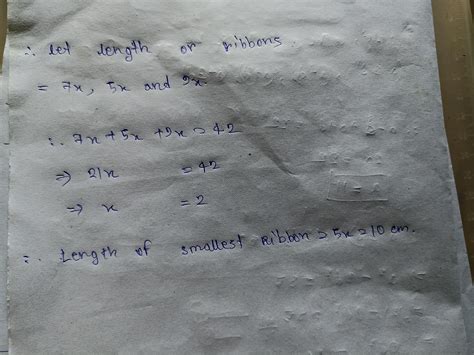 ∴ Let length or ribbons
= 7x, 5x and 9x.
∴ 7x + 5x + 9x = 42
⇒ 21x = 42
⇒ x = 2
∴ Length of smallest Ribbon = 5x = 10 cm.